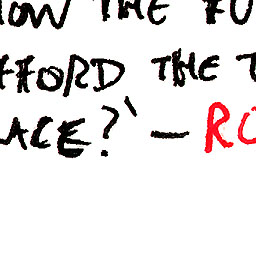 OW THE FU
FFORD THE T
ACE?' — RO